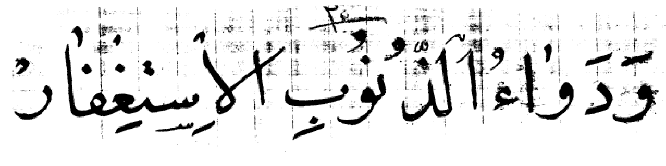 وَدَوَاءُ الذُّنُوبِ الاِسْتِغْفَارُ